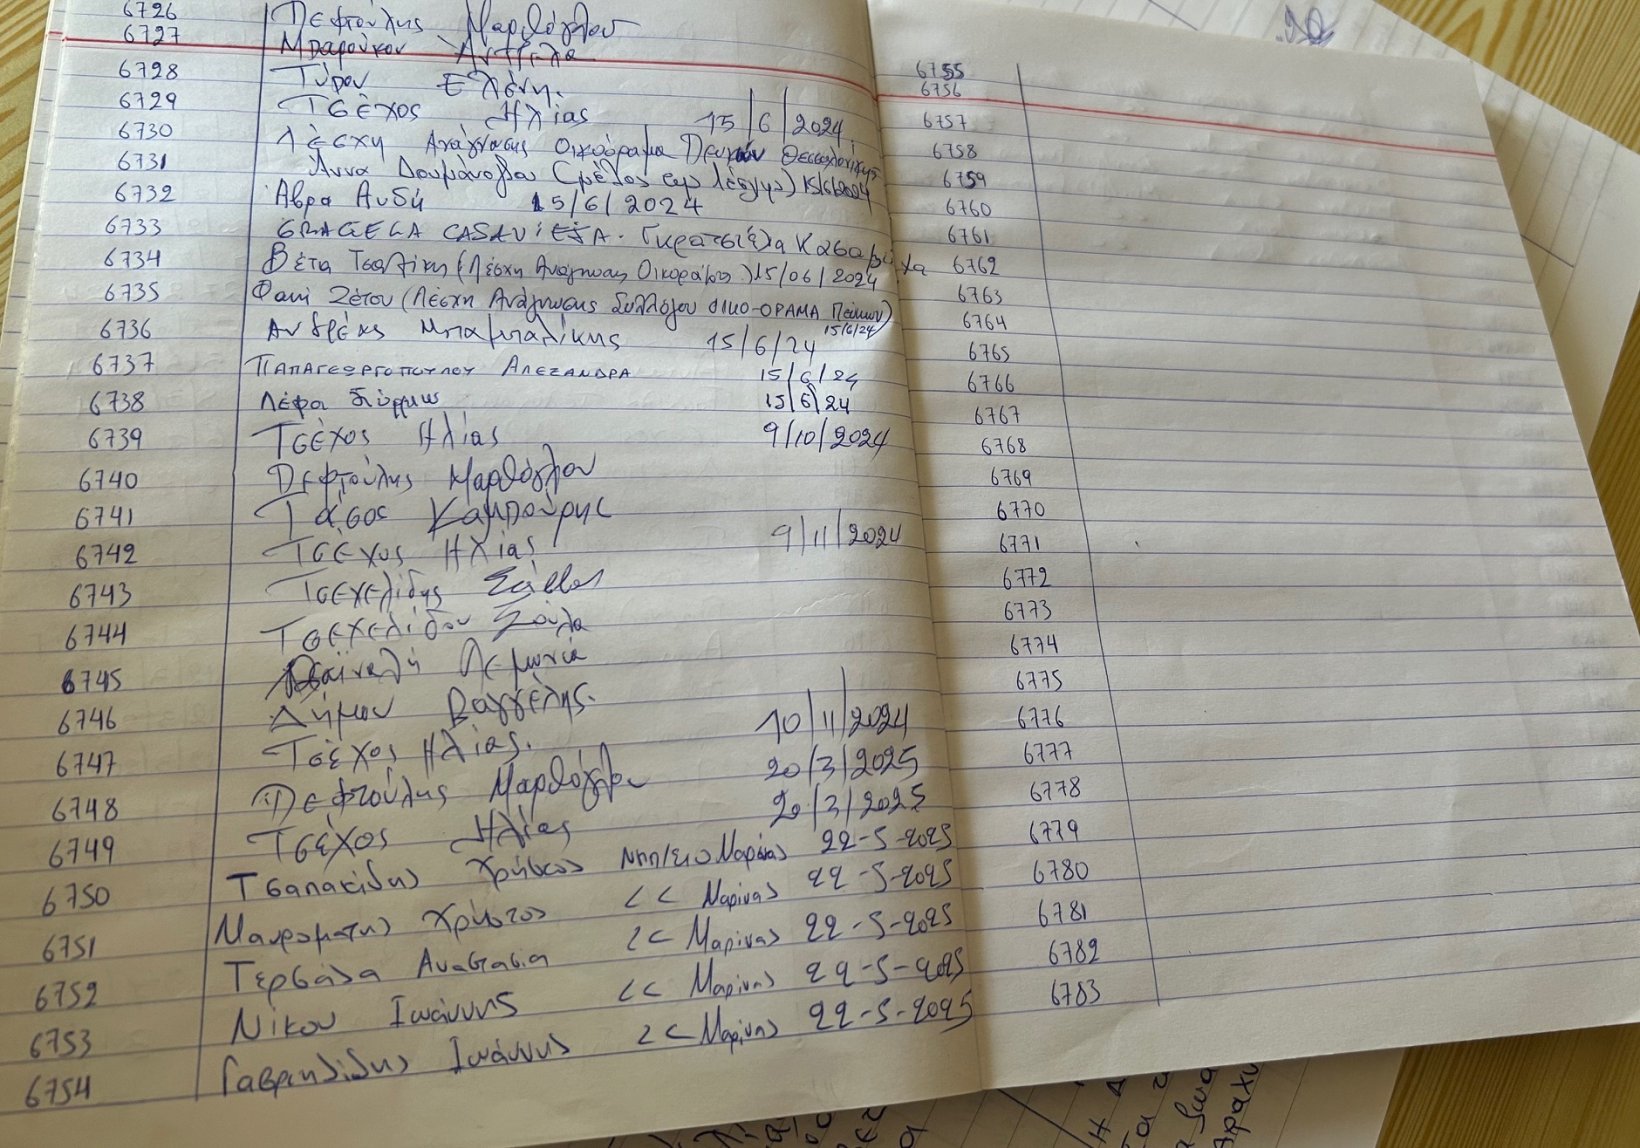 6726 Πεφτούλης Μαρθόγλου
6727 Μπαρούκου Αντζελα
6728 Τύρου Ελένη.
6729 Τσέχος Ηλίας 15/6/2024
6730 Λέσχη Ανάγνωσης Οικοόραμα Πευκών Θεσσαλονίκης
6731 Άννα Δουμάνογλου (μέλος της λέσχης) 15/6/2024
6732 Αύρα Αυδή 15/6/2024
6733 GRACIELA Γκρατσιέλα
6734 Βέτα Τσαλίκη (Λέσχη Ανάγνωσης Οικοράματος) 15/06/2024
6735 Φανή Ζέτου (Λέσχη Ανάγνωσης Συλλόγου ΟΙΚΟ-ΟΡΑΜΑ Πεύκων)
15/6/24
6736 Ανδρέας Μπαμπαλίκης 15/6/24
6737 ΠΑΠΑΓΕΩΡΓΟΠΟΥΛΟΥ ΑΛΕΞΑΝΔΡΑ 15/6/24
6738 Λέφα 15/6/24
6739 Τσέχος Ηλίας 9/10/2024
6740 Πεφτούλης Μαρθόγλου
6741 Τάσος Καμπούρης
6742 Τσέχος Ηλίας 9/11/2024
6743 Τσεχελίδης Σάββας
6744 Τσεχελίδου Σούλα
6745 Λεμονιά
6746 Δήμου Βαγγέλης.
6747 Τσέχος Ηλίας. 10/11/2024
6748 Πεφτούλης Μαρθόγλου 20/3/2025
6749 Τσέχος Ηλίας 20/3/2025
6750 Τσαπακίδης Χρήστος Νηπ/γιο Μαρίνας 22-5-2025
6751 Μαυροματης Χρήστος << Μαρίνας 22-5-2025
6752 Τερσάδα Αναστασια << Μαρίνας 22-5-2025
6753 Νίκου Ιωάννης << Μαρίνας 22-5-2025
6754 Γαβριηλίδης Ιωάννης << Μαρίνας 22-5-2025
6755
6756
6757
6758
6759
6760
6761
6762
6763
6764
6765
6766
6767
6768
6769
6770
6771
6772
6773
6774
6775
6776
6777
6778
6779
6780
6781
6782
6783